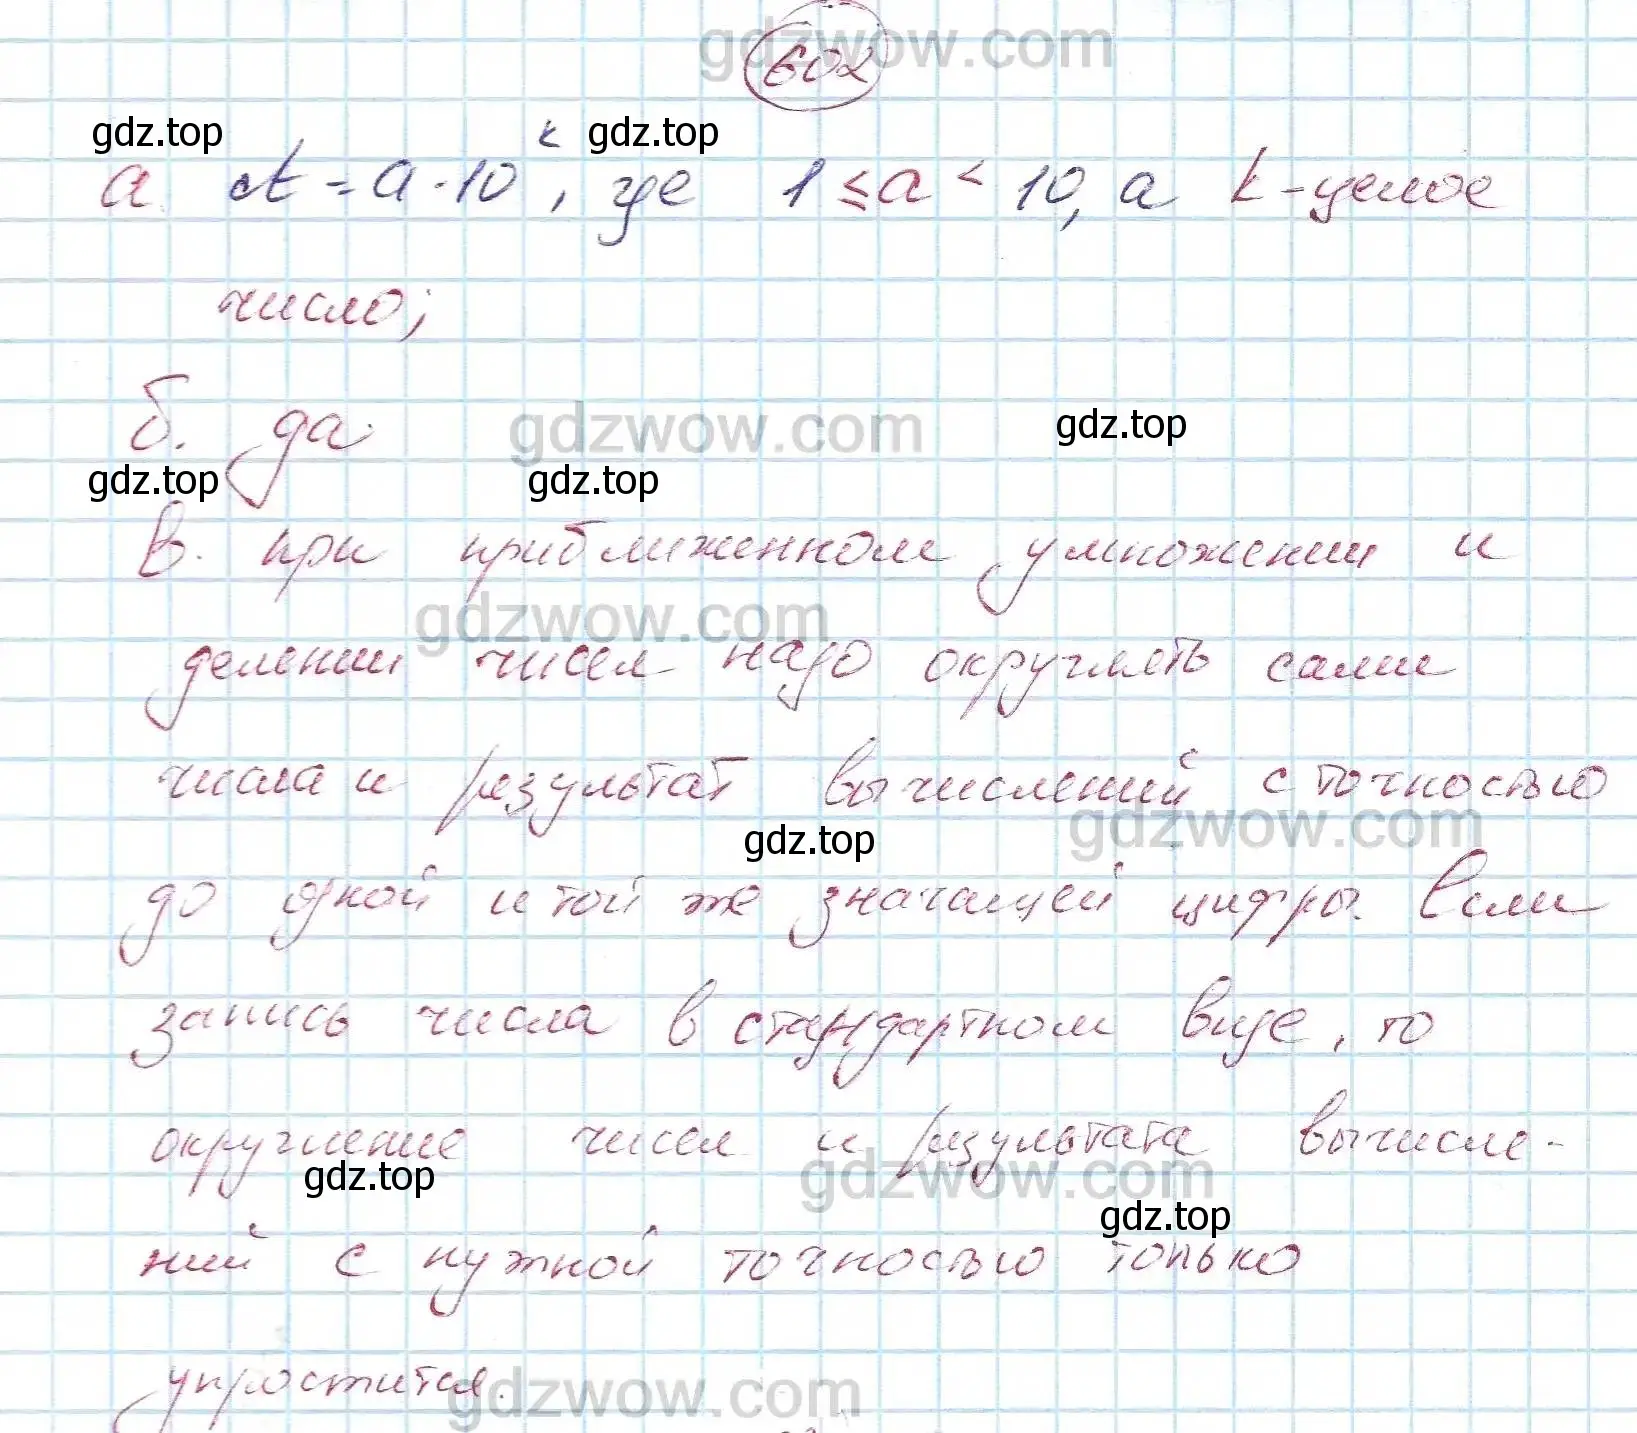 gdzwow.com
602
gdz.top gdz.top
а. A = a · 10^k, где 1 ≤ a < 10, а k - целое
число;
б. да. gdzwow.com gdz.top
gdz.top gdz.top
в. при приближенном умножении и
gdzwow.com
делении чисел надо округлять сами
числа и результат вычислений с точностью
gdz.top gdzwow.com
до одной и той же значащей цифры. Если
запись числа в стандартном виде, то
округление чисел и результата вычисле-
gdz.top gdzwow.com
gdz.top
ний с нужной точностью только
упростится. gdzwow.com